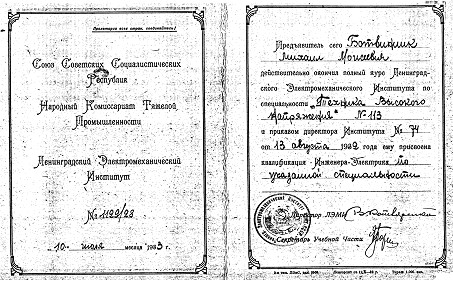 Пролетарии всех стран, соединяйтесь!
Союз Советских Социалистических
Республик
Народный Комиссариат Тяжелой
Промышленности
Ленинградский Электромеханический
Институт
№ 1129/23
10 июля месяца 1933 г.
Предъявитель сего Ботвинник
Михаил Моисеевич
действительно окончил полный курс Ленинград-
ского Электромеханического Института по
специальности „Техника Высокого
Напряжения" № 113
и приказом директора Института № 74
от 13 августа 1932 года ему присвоена
квалификация Инженера-Электрика по
указанной специальности
Директор ЛЭМИ
Секретарь Учебной Части